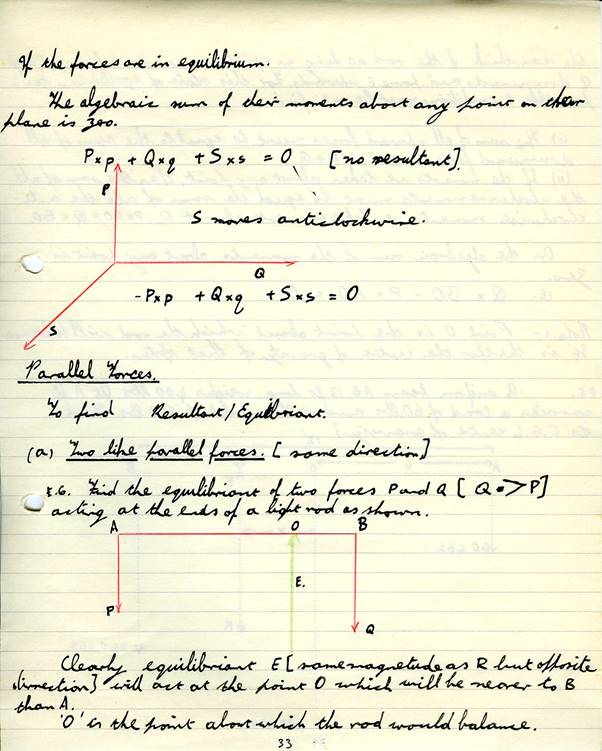 If the forces are in equilibrium.
The algebraic sum of their moments about any point on their
plane is zero.
P×p + Q×q + S×s = 0 [no resultant].
P
S moves anticlockwise.
Q
-P×p + Q×q + S×s = 0
S
Parallel Forces.
To find Resultant/Equilibriant.
(a) Two like parallel forces. [same direction]
E.G. Find the equilibriant of two forces P and Q [Q > P]
acting at the ends of a light rod as shown.
A O B
E.
P
Q
Clearly equilibriant E [same magnetude as R but opposite
direction] will act at the point O which will be nearer to B
than A.
'O' is the point about which the rod would balance.
33